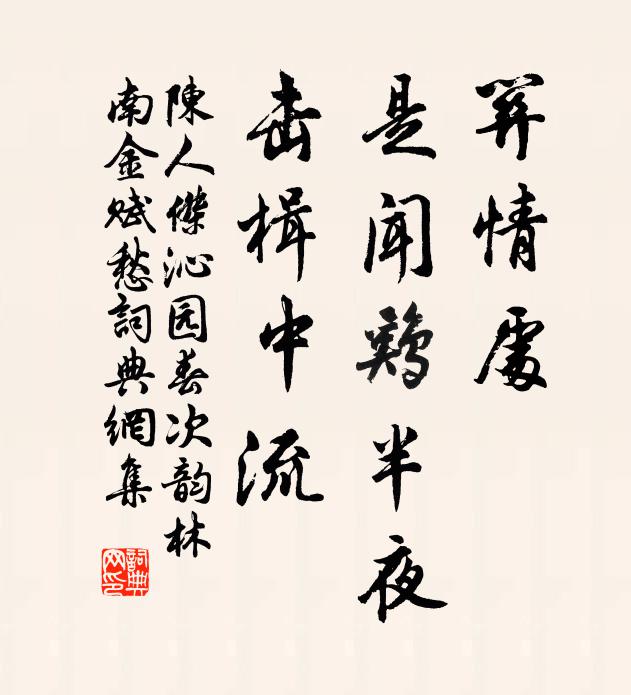 筭情處
是聞鷄半夜
击楫中流
陳人傑沁园春次韵林
南金賦愁詞典網集
詞典网印